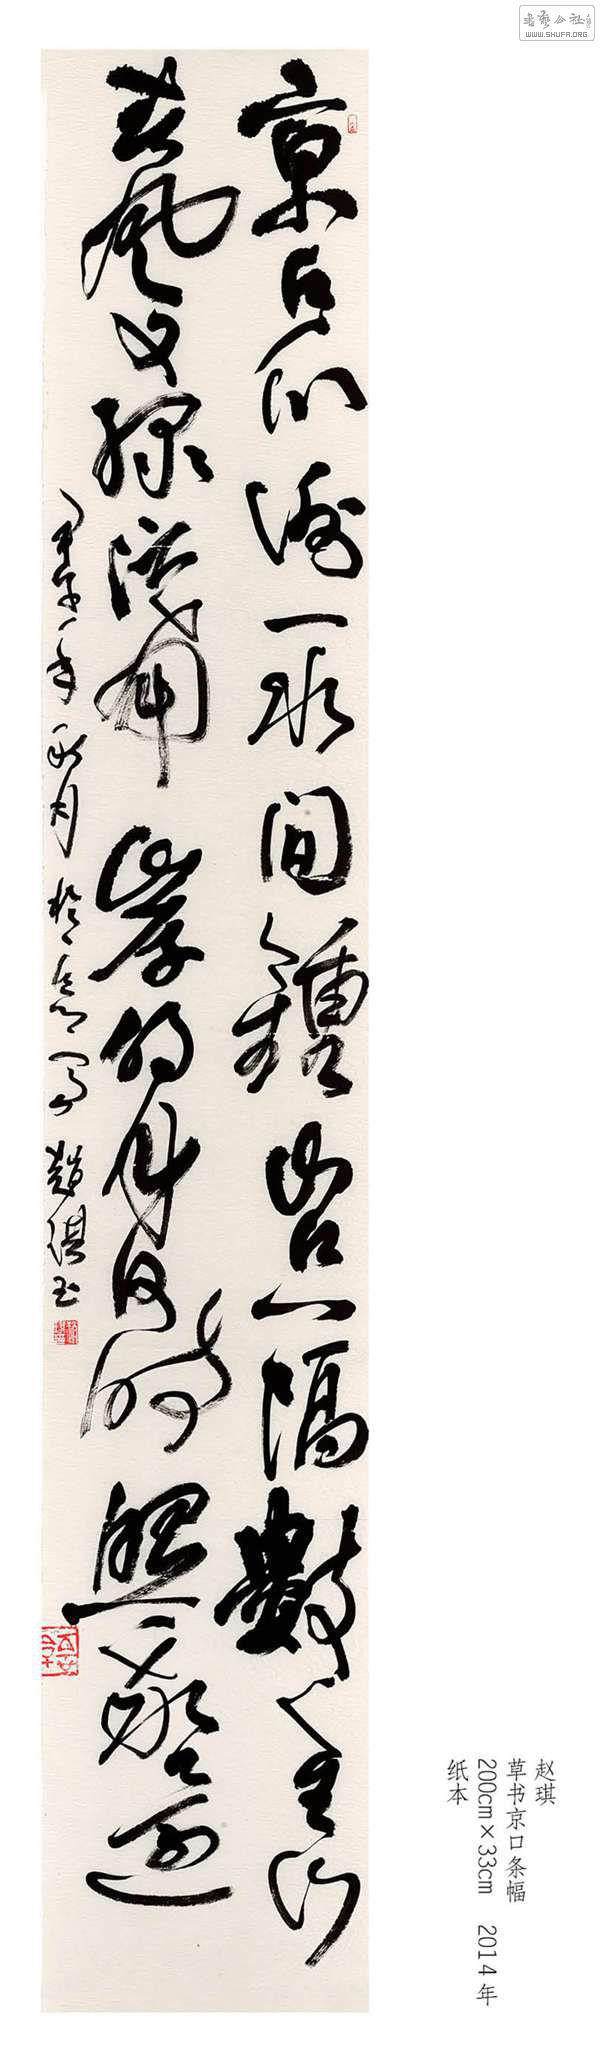 書藝公社
WWW.SHUFA.ORG
京口瓜洲一水間鍾山只隔數重山
春風又綠江南岸明月何時照我還
甲午年秋月於 寫 趙琪
赵琪
草书京口条幅
200cm×33cm 2014年
纸本